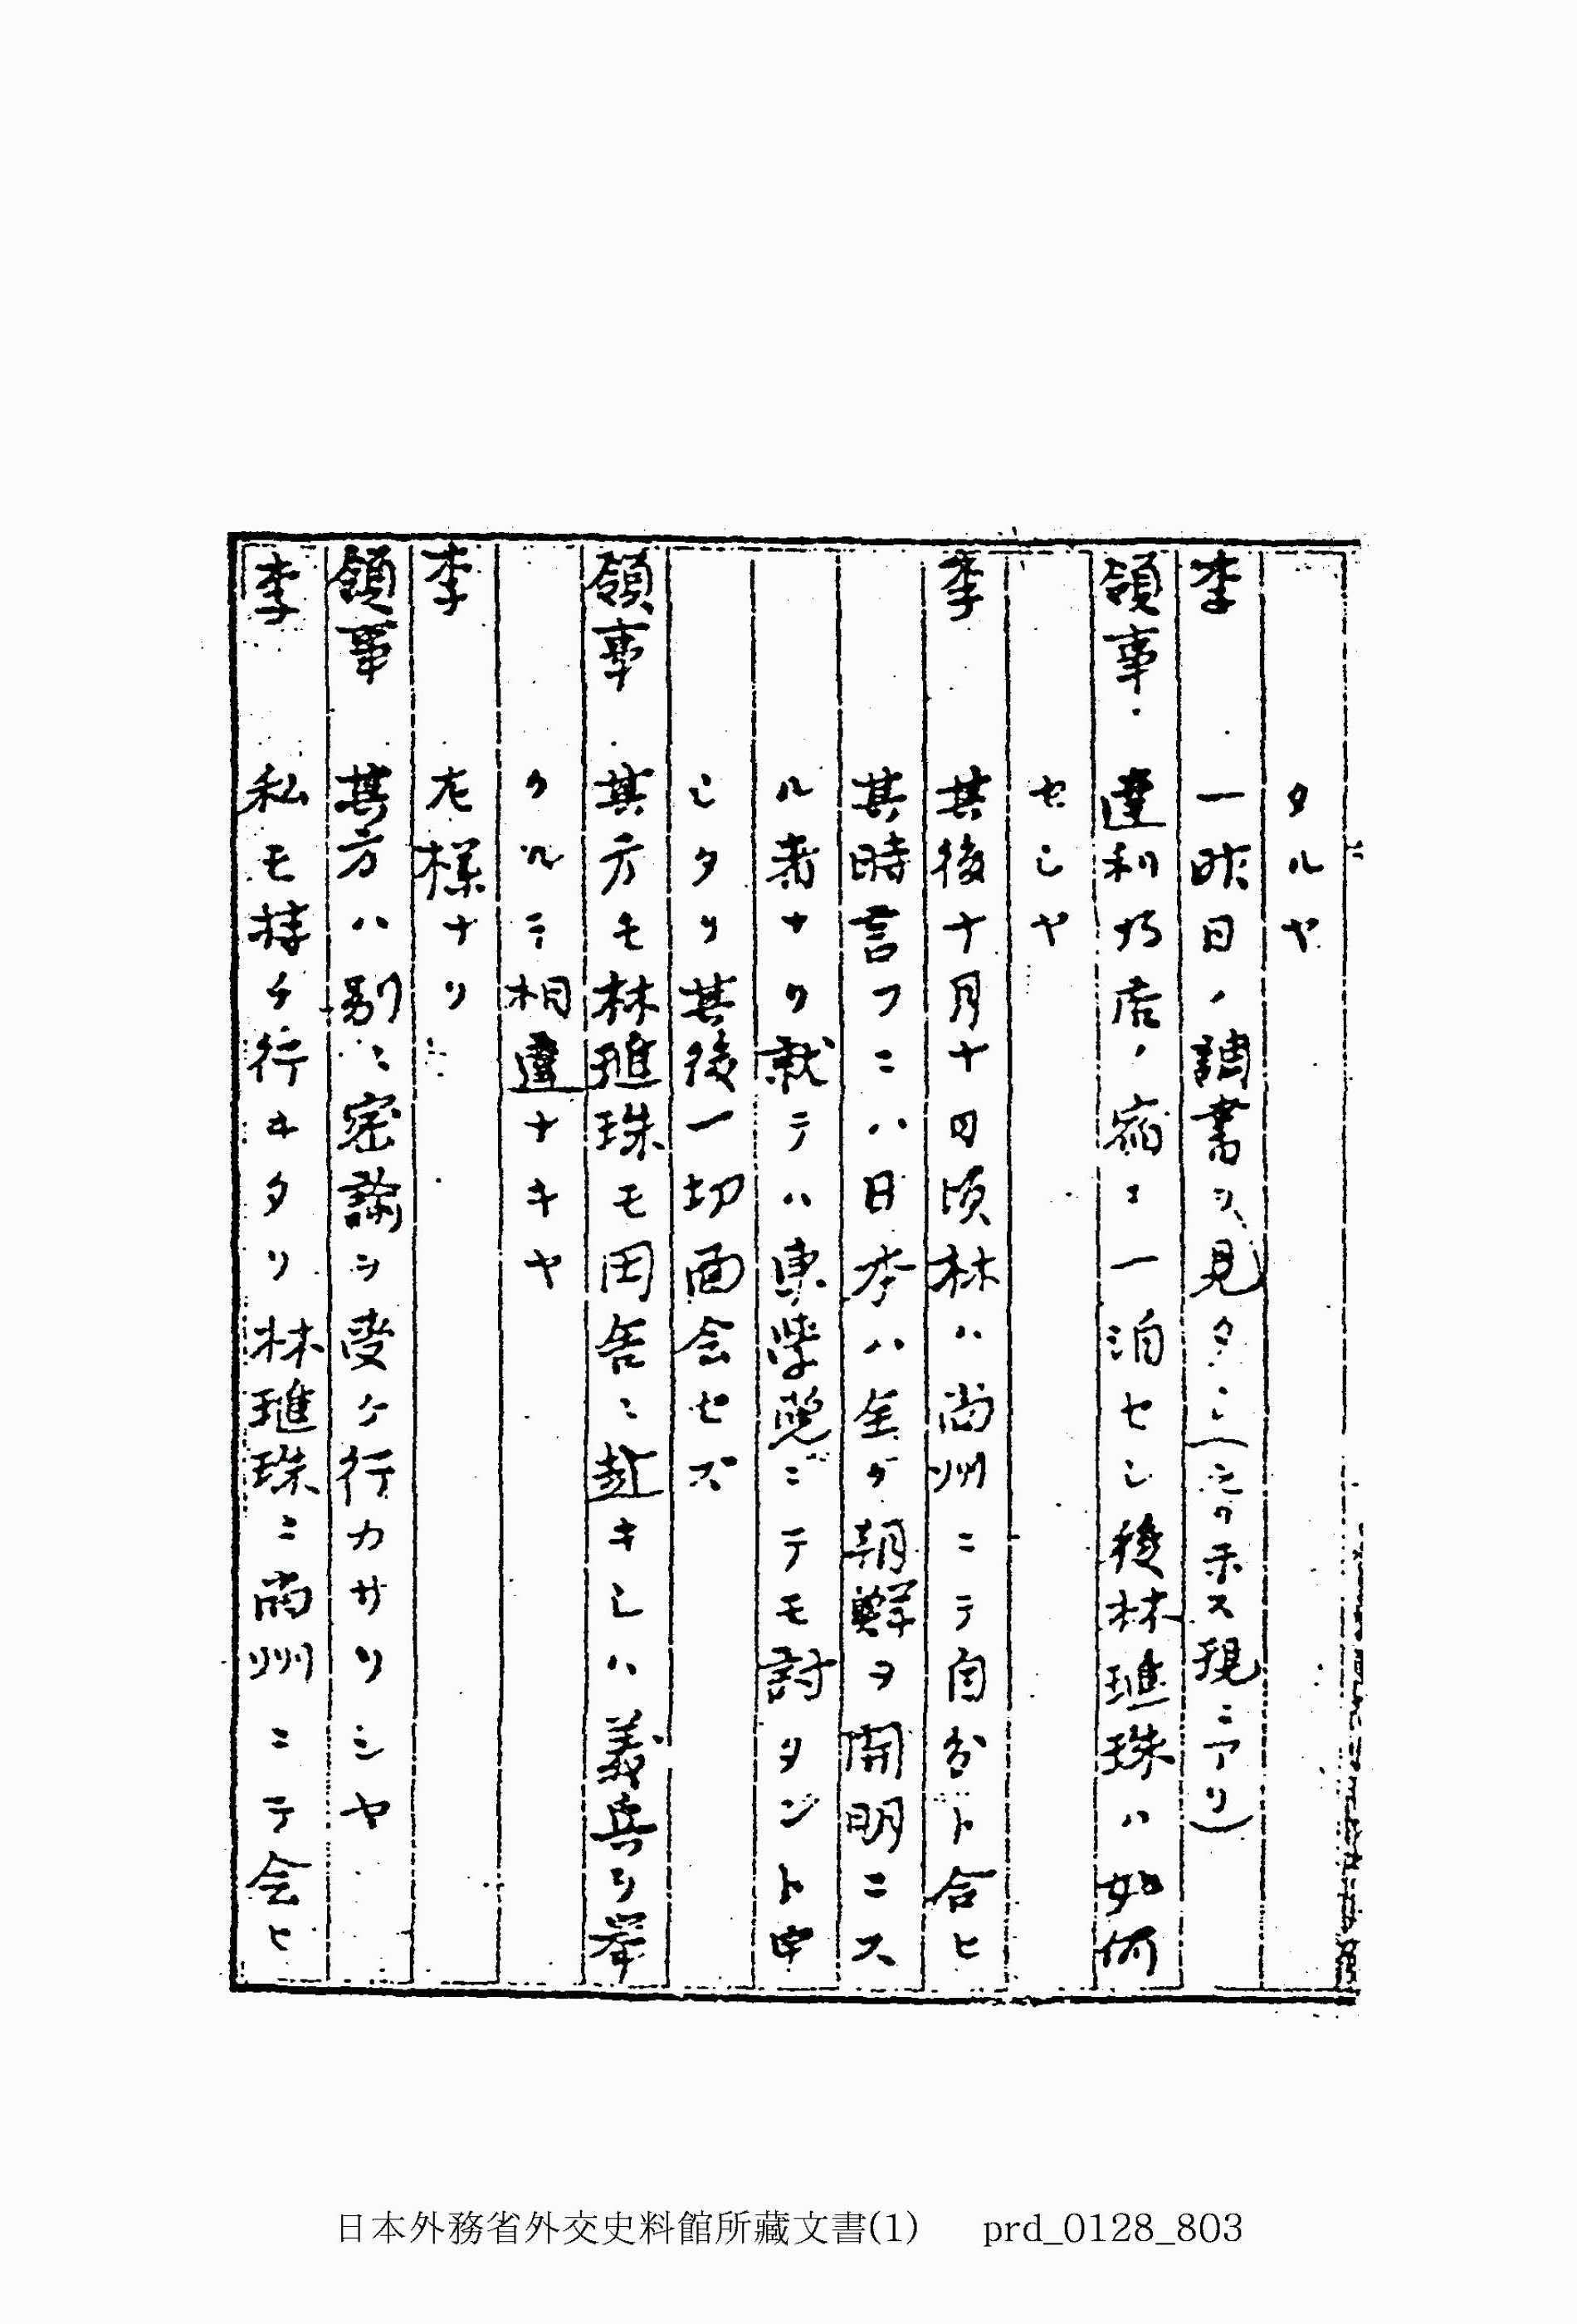 タルヤ
李 一昨日ノ調書ヲ見タシ(之ヲ示ス現ニアリ)
領事 達利乃店ノ宿ニ一泊セシ後林璡珠ハ如何
セシヤ
李 其後十月十日頃林ハ尚州ニテ自分ト合ヒ
其時言フニハ日本ハ全ガ朝鮮ヲ開明ニス
ル者ナリ就テハ東学党ヲ討タント申
シタリ其後一切面会セズ
領事 其方モ林璡珠モ田舎ニ赴キシハ義兵ヲ挙
クルテ相違ナキヤ
李 左様ナリ
領事 其方ハ別ニ密諭ヲ受ケ行カサリシヤ
李 私モ持チ行キタリ林璡珠ニ尚州ニテ会ヒ
日本外務省外交史料館所藏文書(1) prd_0128_803